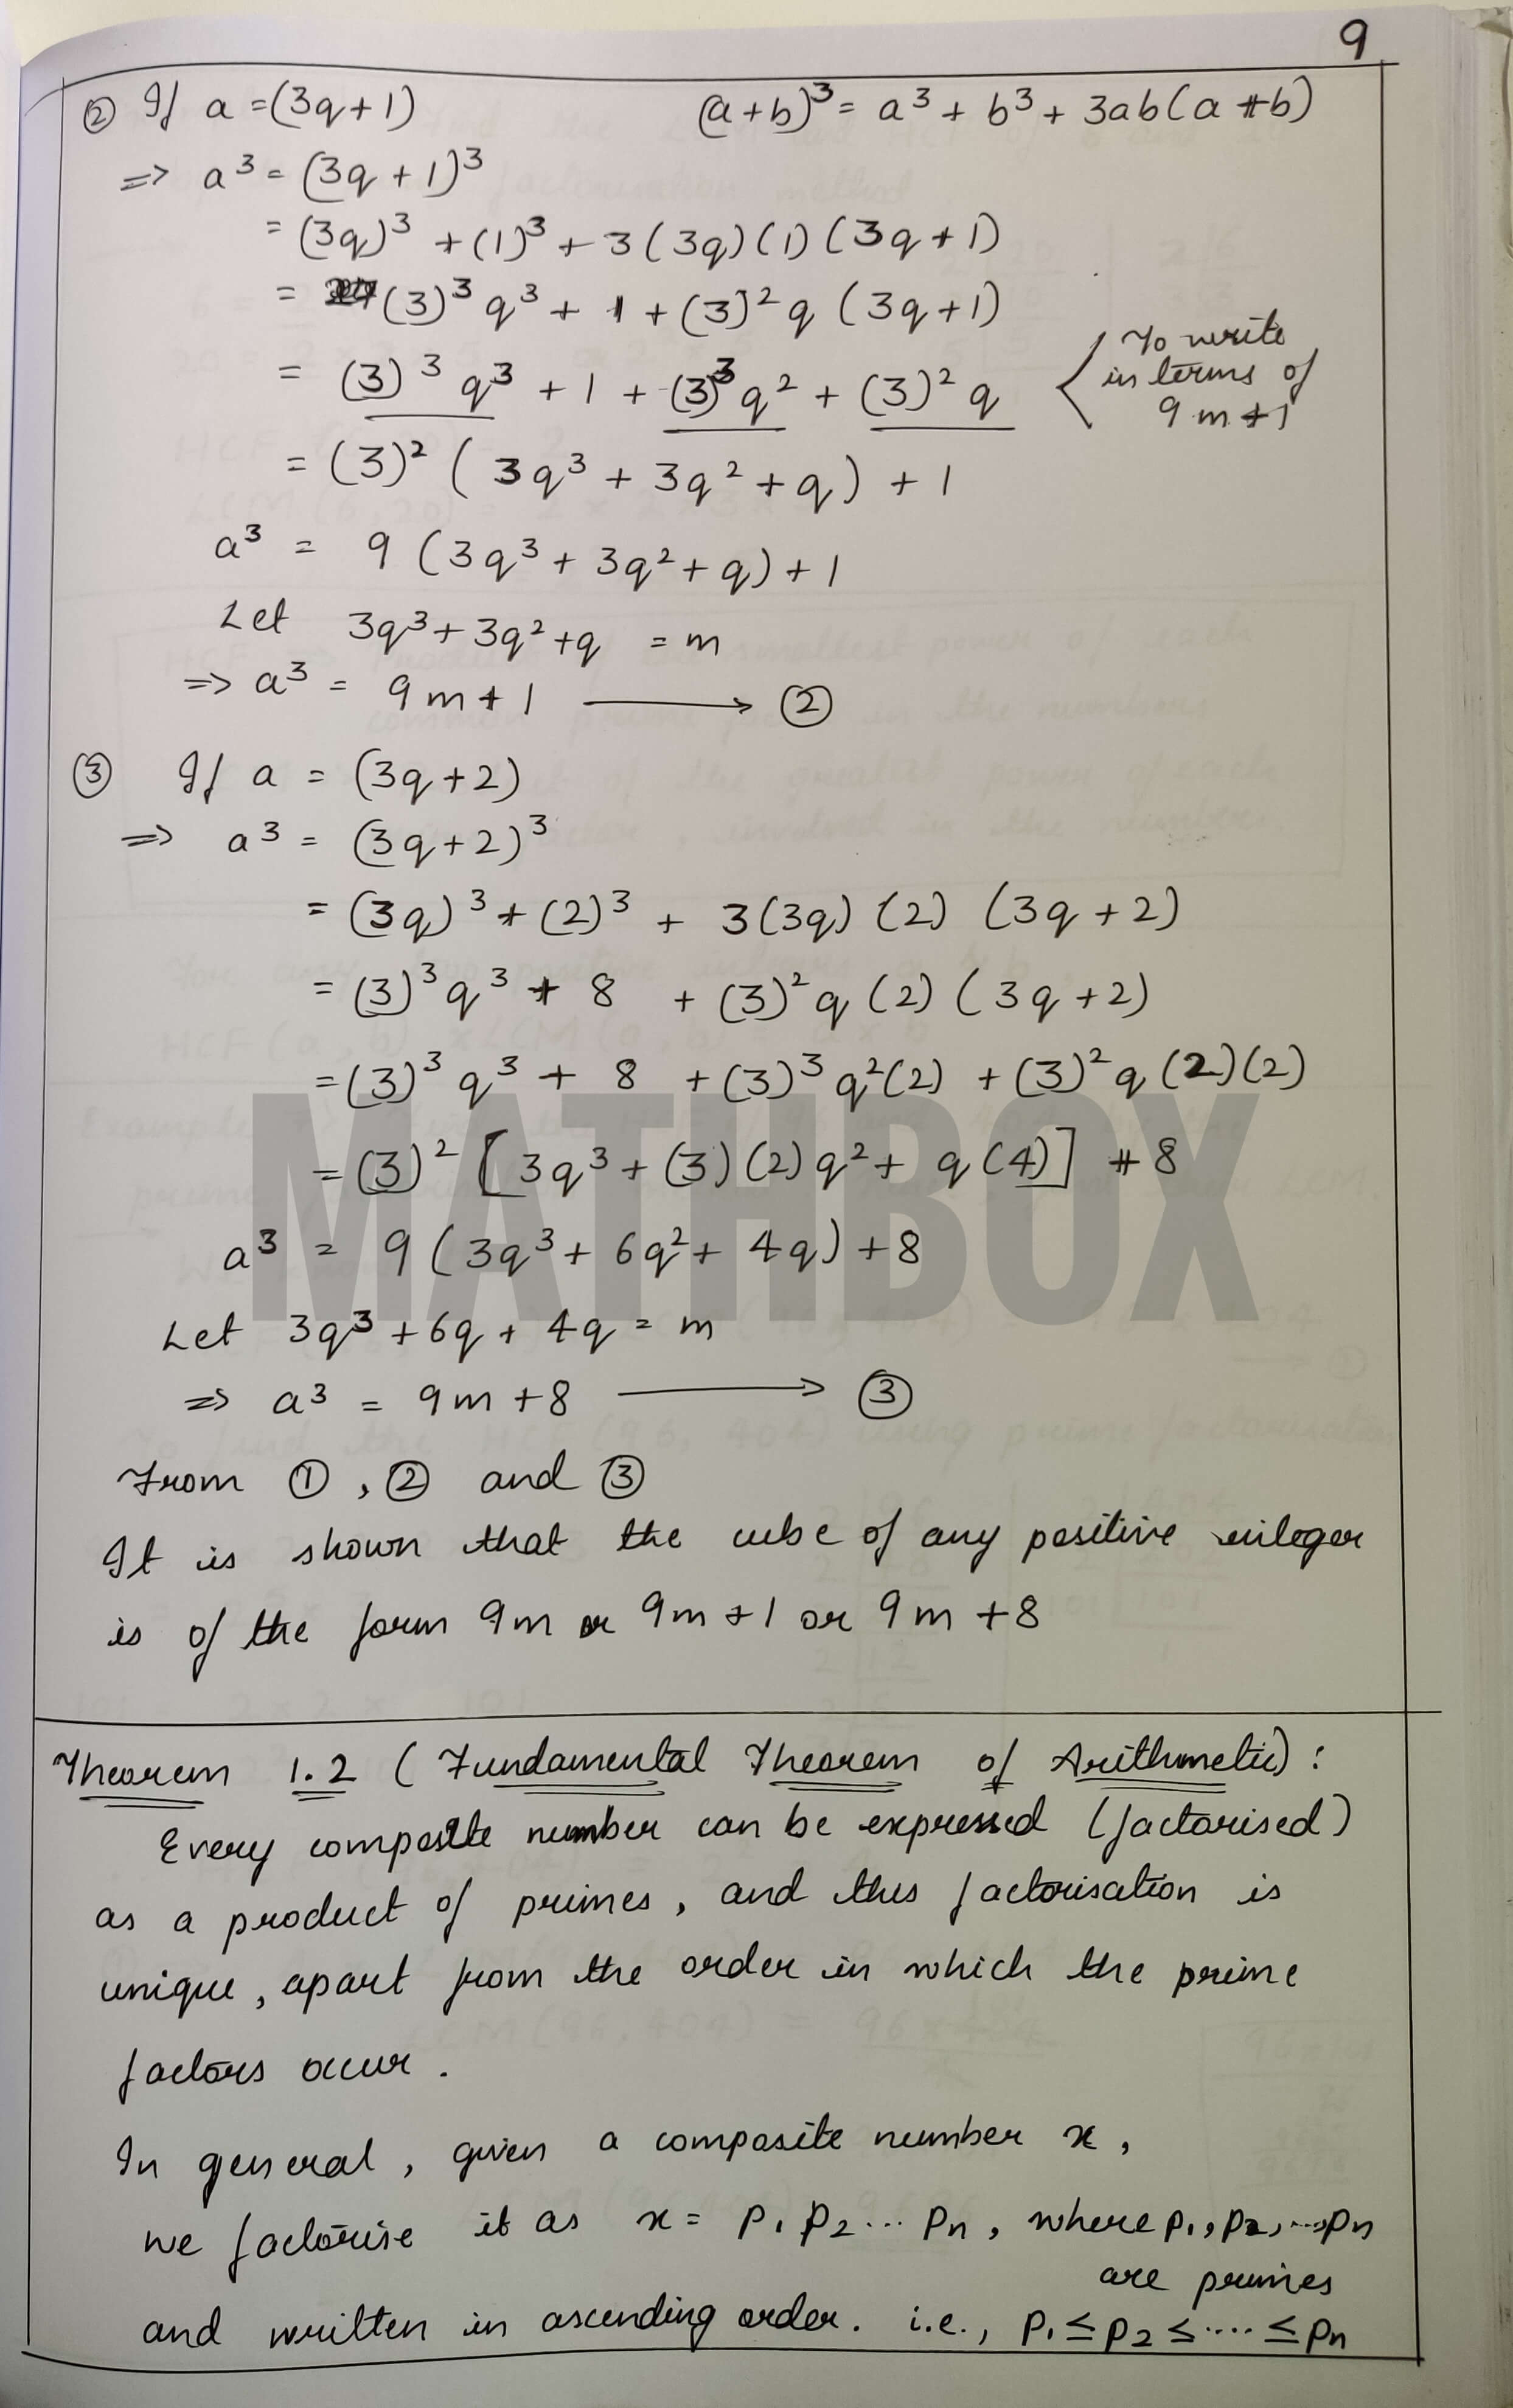 9
② If a = (3q+1) (a+b)³ = a³ + b³ + 3ab(a+b)
=> a³ = (3q+1)³
= (3q)³ + (1)³ + 3(3q)(1)(3q+1)
= (3)³ q³ + 1 + (3)² q (3q+1)
= (3)³ q³ + 1 + (3)³ q² + (3)² q
To write
in terms of
9m+1
= (3)² (3q³ + 3q² + q) + 1
a³ = 9 (3q³ + 3q² + q) + 1
Let 3q³ + 3q² + q = m
=> a³ = 9m+1 ⟶ ②
③ If a = (3q+2)
=> a³ = (3q+2)³
= (3q)³ + (2)³ + 3(3q)(2)(3q+2)
= (3)³ q³ + 8 + (3)² q (2)(3q+2)
= (3)³ q³ + 8 + (3)³ q²(2) + (3)² q (2)(2)
= (3)² [3q³ + (3)(2)q² + q(4)] + 8
a³ = 9 (3q³ + 6q² + 4q) + 8
MATHBOX
Let 3q³ + 6q + 4q = m
=> a³ = 9m+8 ⟶ ③
From ①, ② and ③
It is shown that the cube of any positive integer
is of the form 9m or 9m+1 or 9m+8
Theorem 1.2 (Fundamental Theorem of Arithmetic):
Every composite number can be expressed (factorised)
as a product of primes, and this factorisation is
unique, apart from the order in which the prime
factors occur.
In general, given a composite number x,
we factorise it as x = p₁ p₂ ... pn, where p₁, p₂, ..., pn
are primes
and written in ascending order. i.e., p₁ ≤ p₂ ≤ .... ≤ pn